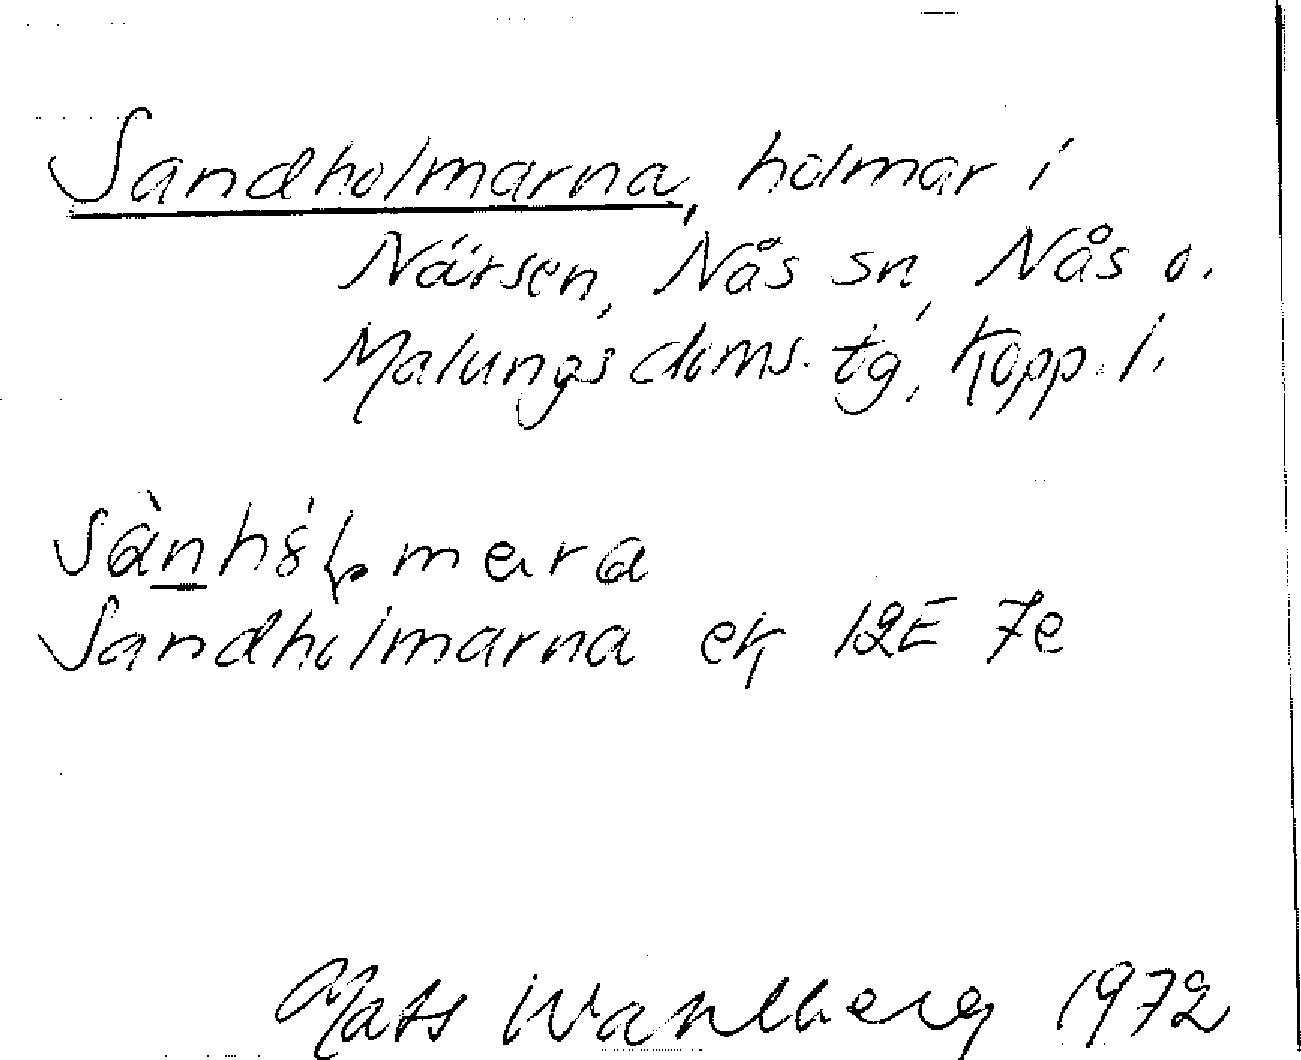 Sandholmarna, holmar i
Närsen, Nås sn, Nås o.
Malungs doms. tg, Kopp. l.
Sandholmarna ek 12E 7e
Mats Wahlberg 1972